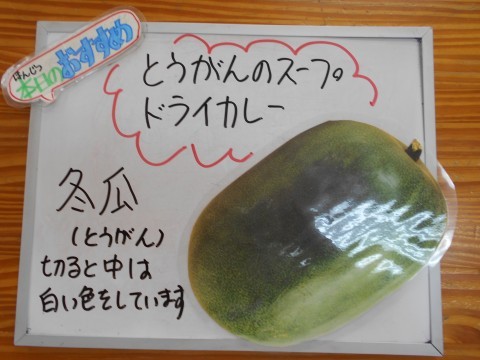 ほんじつ
本日のおすすめ
とうがんのスープ
ドライカレー
冬瓜
(とうがん)
切ると中は
白い色をしています